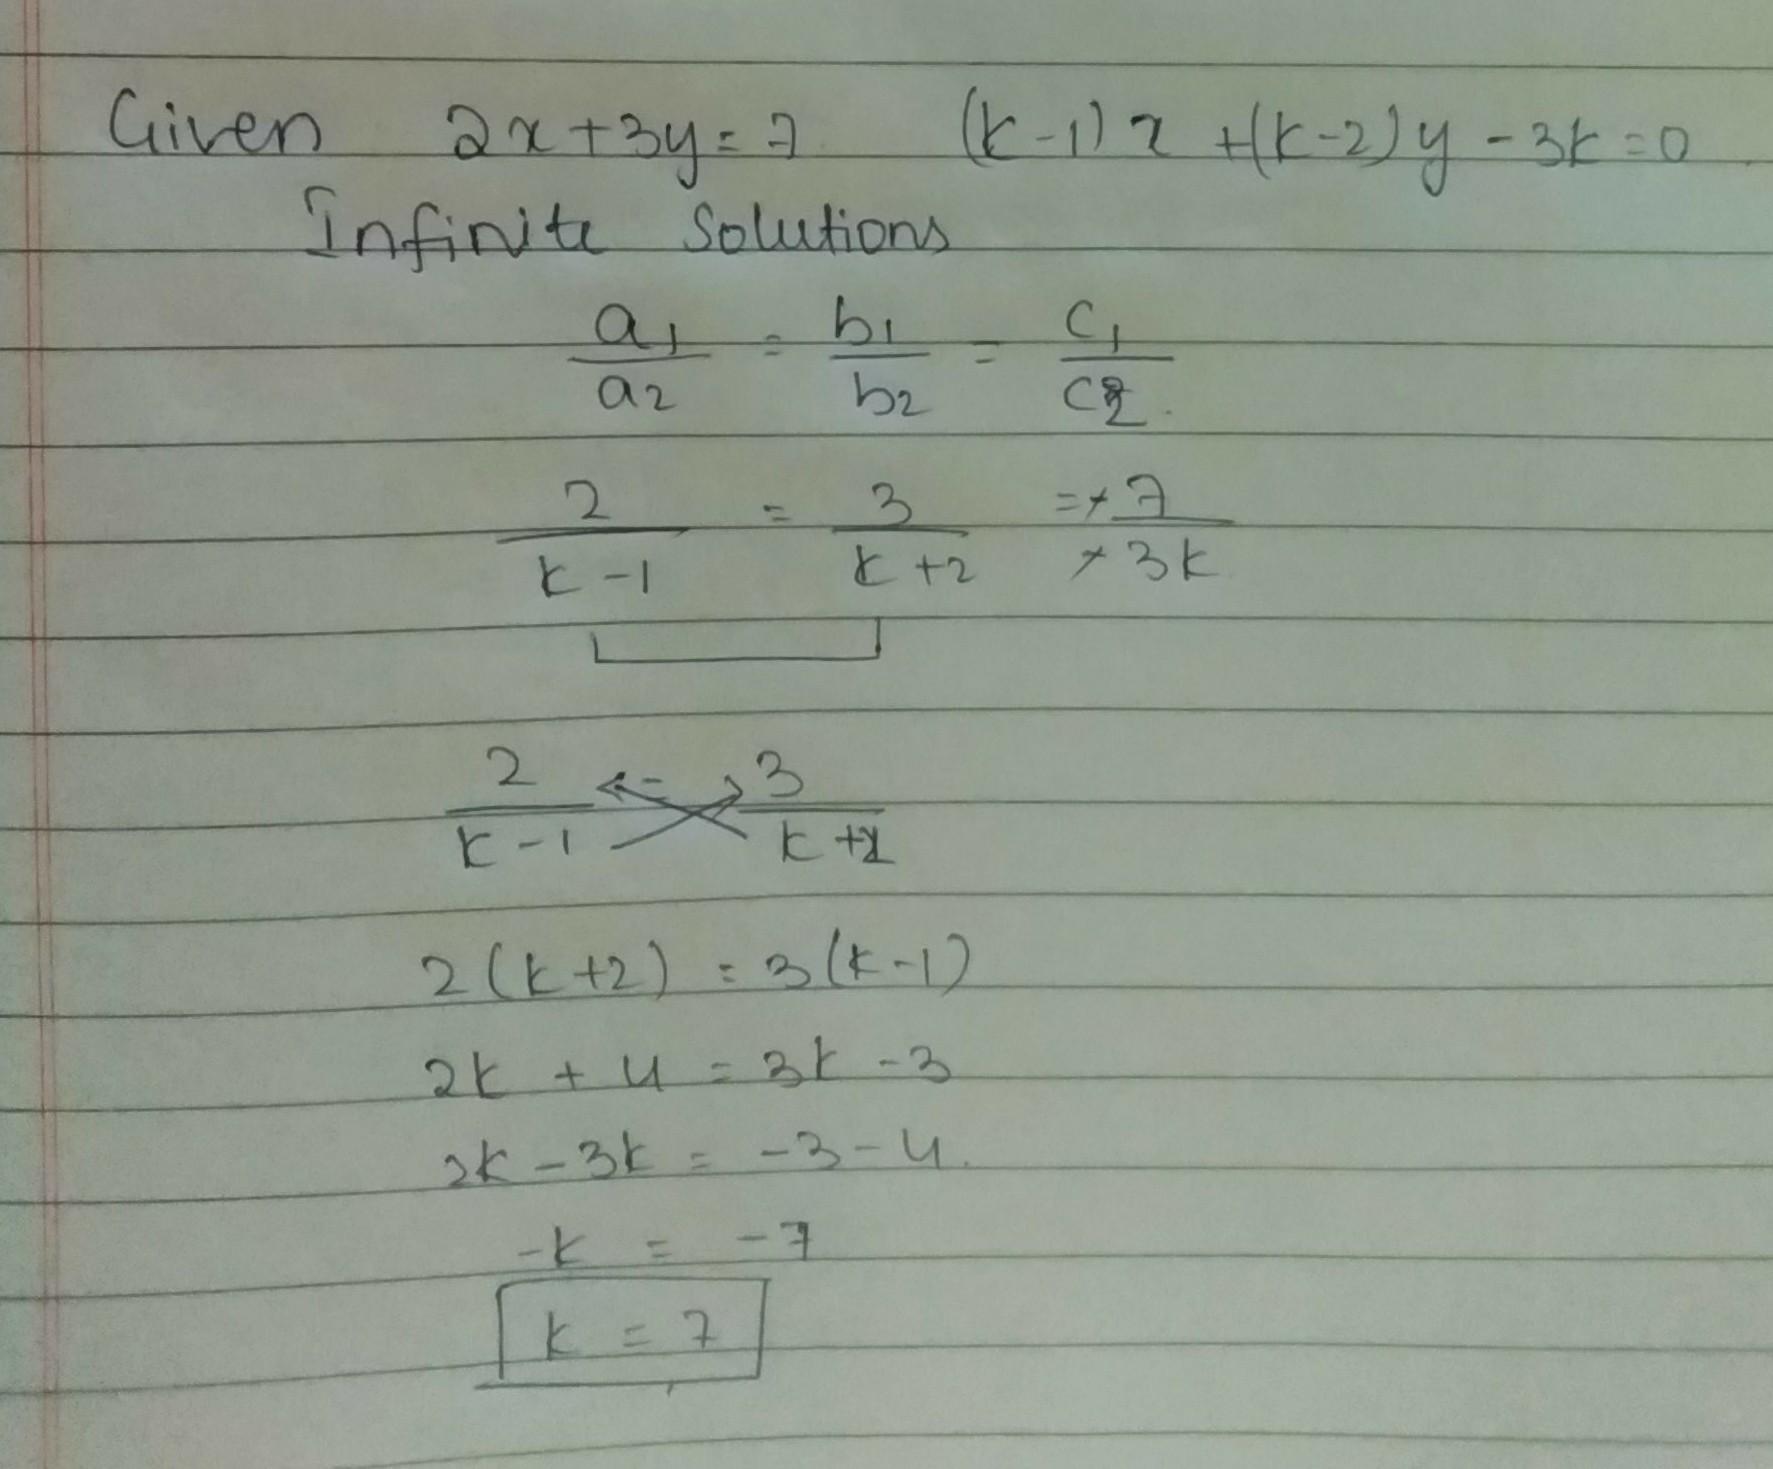 Given 2x+3y=7 (k-1)x+(k-2)y-3k=0
Infinite Solutions
a1/a2 = b1/b2 = c1/c2
2/k-1 = 3/k+2 = 7/3k
2/k-1 = 3/k+2
2(k+2) = 3(k-1)
2k + 4 = 3k - 3
2k - 3k = -3-4.
-k = -7
k = 7